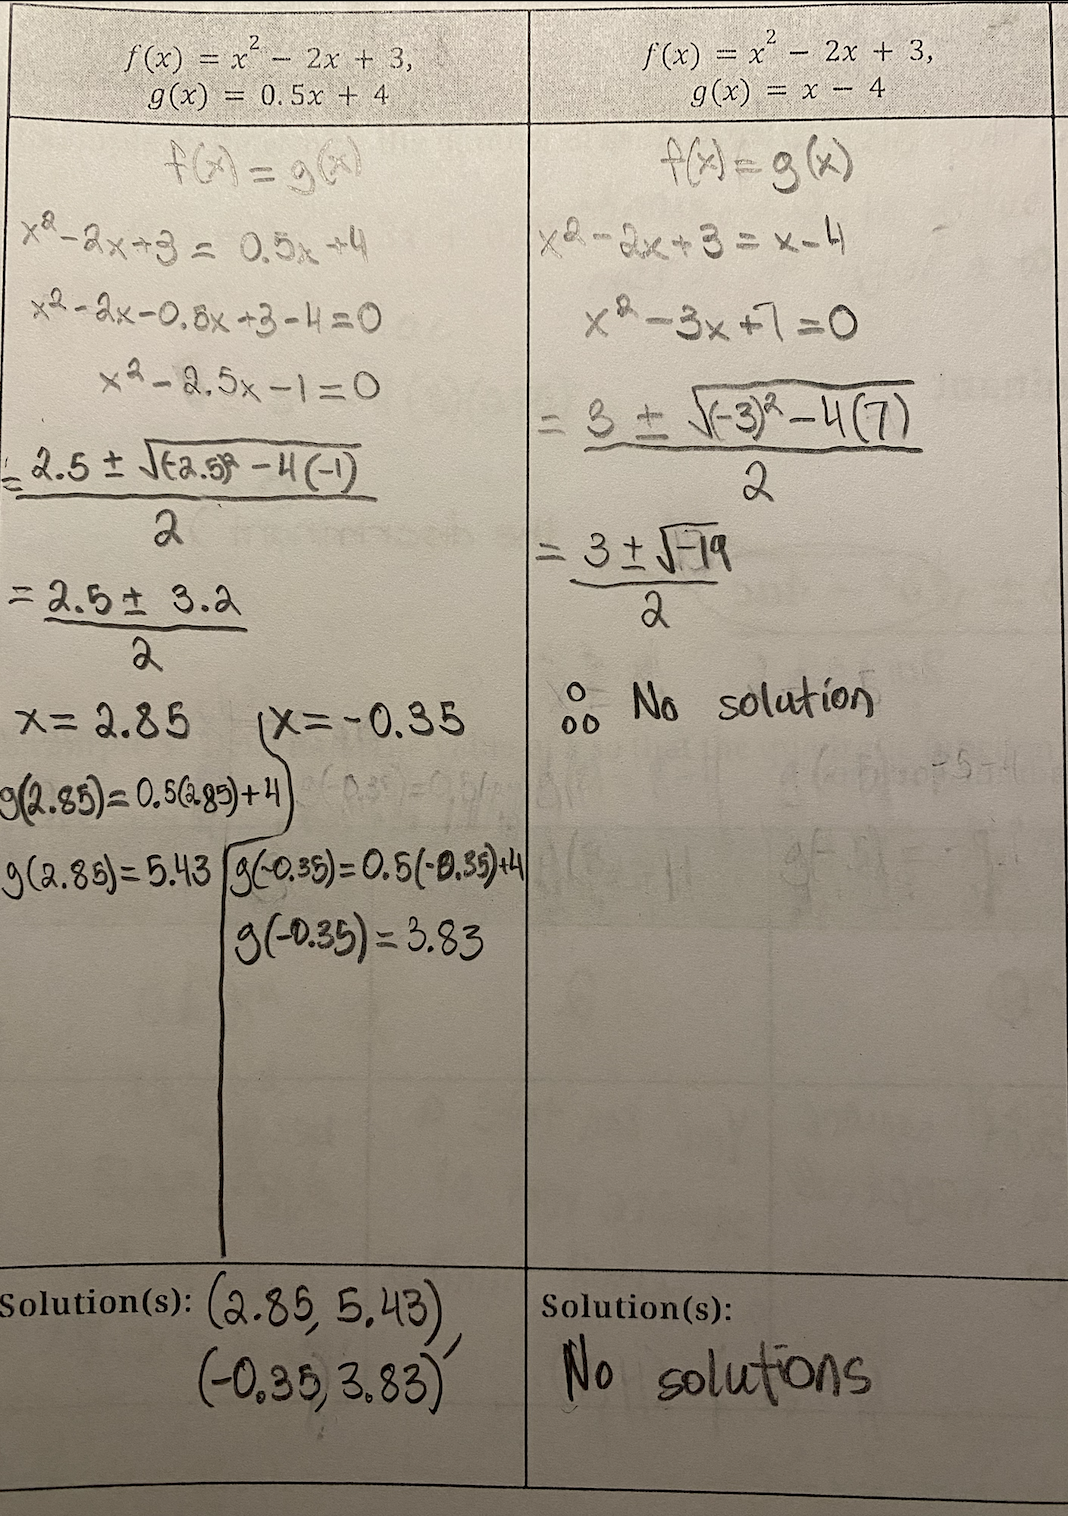 f(x) = x² − 2x + 3,
g(x) = 0.5x + 4
f(x) = g(x)
x² - 2x + 3 = 0.5x + 4
x² - 2x - 0.5x + 3 - 4 = 0
x² - 2.5x - 1 = 0
= 2.5 ± √(-2.5)² - 4(-1)
2
= 2.5 ± 3.2
2
x = 2.85 x = -0.35
g(2.85) = 0.5(2.85) + 4
g(2.85) = 5.43 g(-0.35) = 0.5(-0.35) + 4
g(-0.35) = 3.83
Solution(s): (2.85, 5.43),
(-0.35, 3.83)
f(x) = x² − 2x + 3,
g(x) = x − 4
f(x) = g(x)
x² - 2x + 3 = x - 4
x² - 3x + 7 = 0
= 3 ± √(-3)² - 4(7)
2
= 3 ± √-19
2
∴ No solution
Solution(s):
No solutions